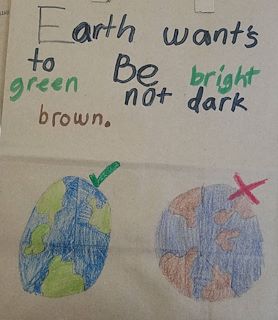 Earth wants
to Be bright
green not dark
brown.